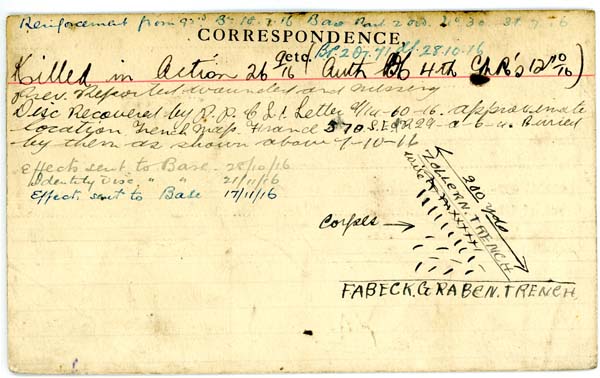 Reinforcement from 92nd Bn 15.7.16 Base Part 2 Ord. 30 31.7.16
CORRESPONDENCE,
etc. 28-10-16
Killed in Action 26 9/16 (Auth 4th CMR's 12 10/16)
Prev. Reported wounded and missing
Disc Recovered by P.P.C.L.I. Letter 60-16. approximate
location Trench Map. France 57D.S.E. R29-a-6-4. Buried
by them as shown above 7-10-16
Effects sent to Base. 28/10/16
Identity Disc, " " 21/11/16
Effects sent to Base 17/11/16
200 yds
ZOLLERN. TRENCH
wire XXXXXX
Corpses →
FABECK. GRABEN. TRENCH